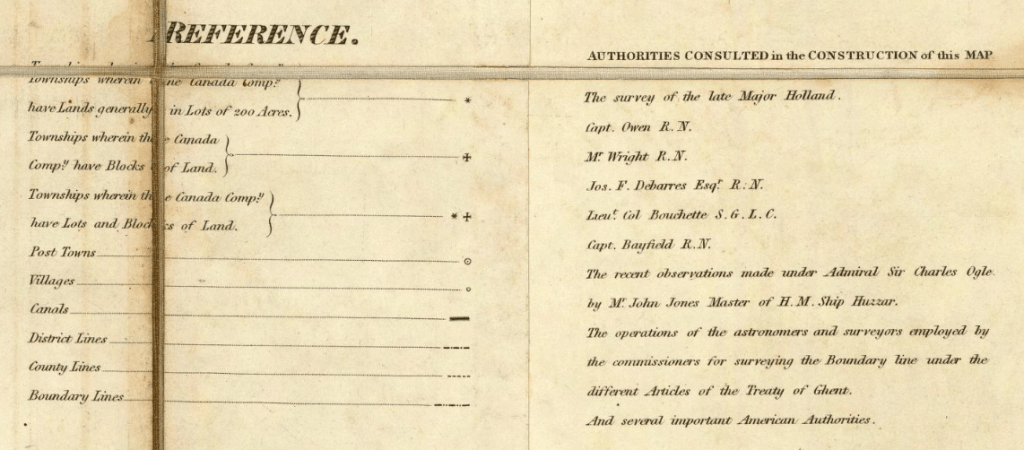 REFERENCE.
Townships wherein the Canada Comp.y
have Lands generally in Lots of 200 Acres.
Townships wherein the Canada
Comp.y have Blocks of Land.
Townships wherein the Canada Comp.y
have Lots and Blocks of Land.
Post Towns
Villages
Canals
District Lines
County Lines
Boundary Lines
AUTHORITIES CONSULTED in the CONSTRUCTION of this MAP
The survey of the late Major Holland.
Capt. Owen R.N.
Mr. Wright R.N.
Jos. F. Debarres Esqr. R.N.
Lieut. Col Bouchette S.G.L.C.
Capt. Bayfield R.N.
The recent observations made under Admiral Sir Charles Ogle
by Mr. John Jones Master of H.M. Ship Huzzar.
The operations of the astronomers and surveyors employed by
the commissioners for surveying the Boundary line under the
different Articles of the Treaty of Ghent.
And several important American Authorities.